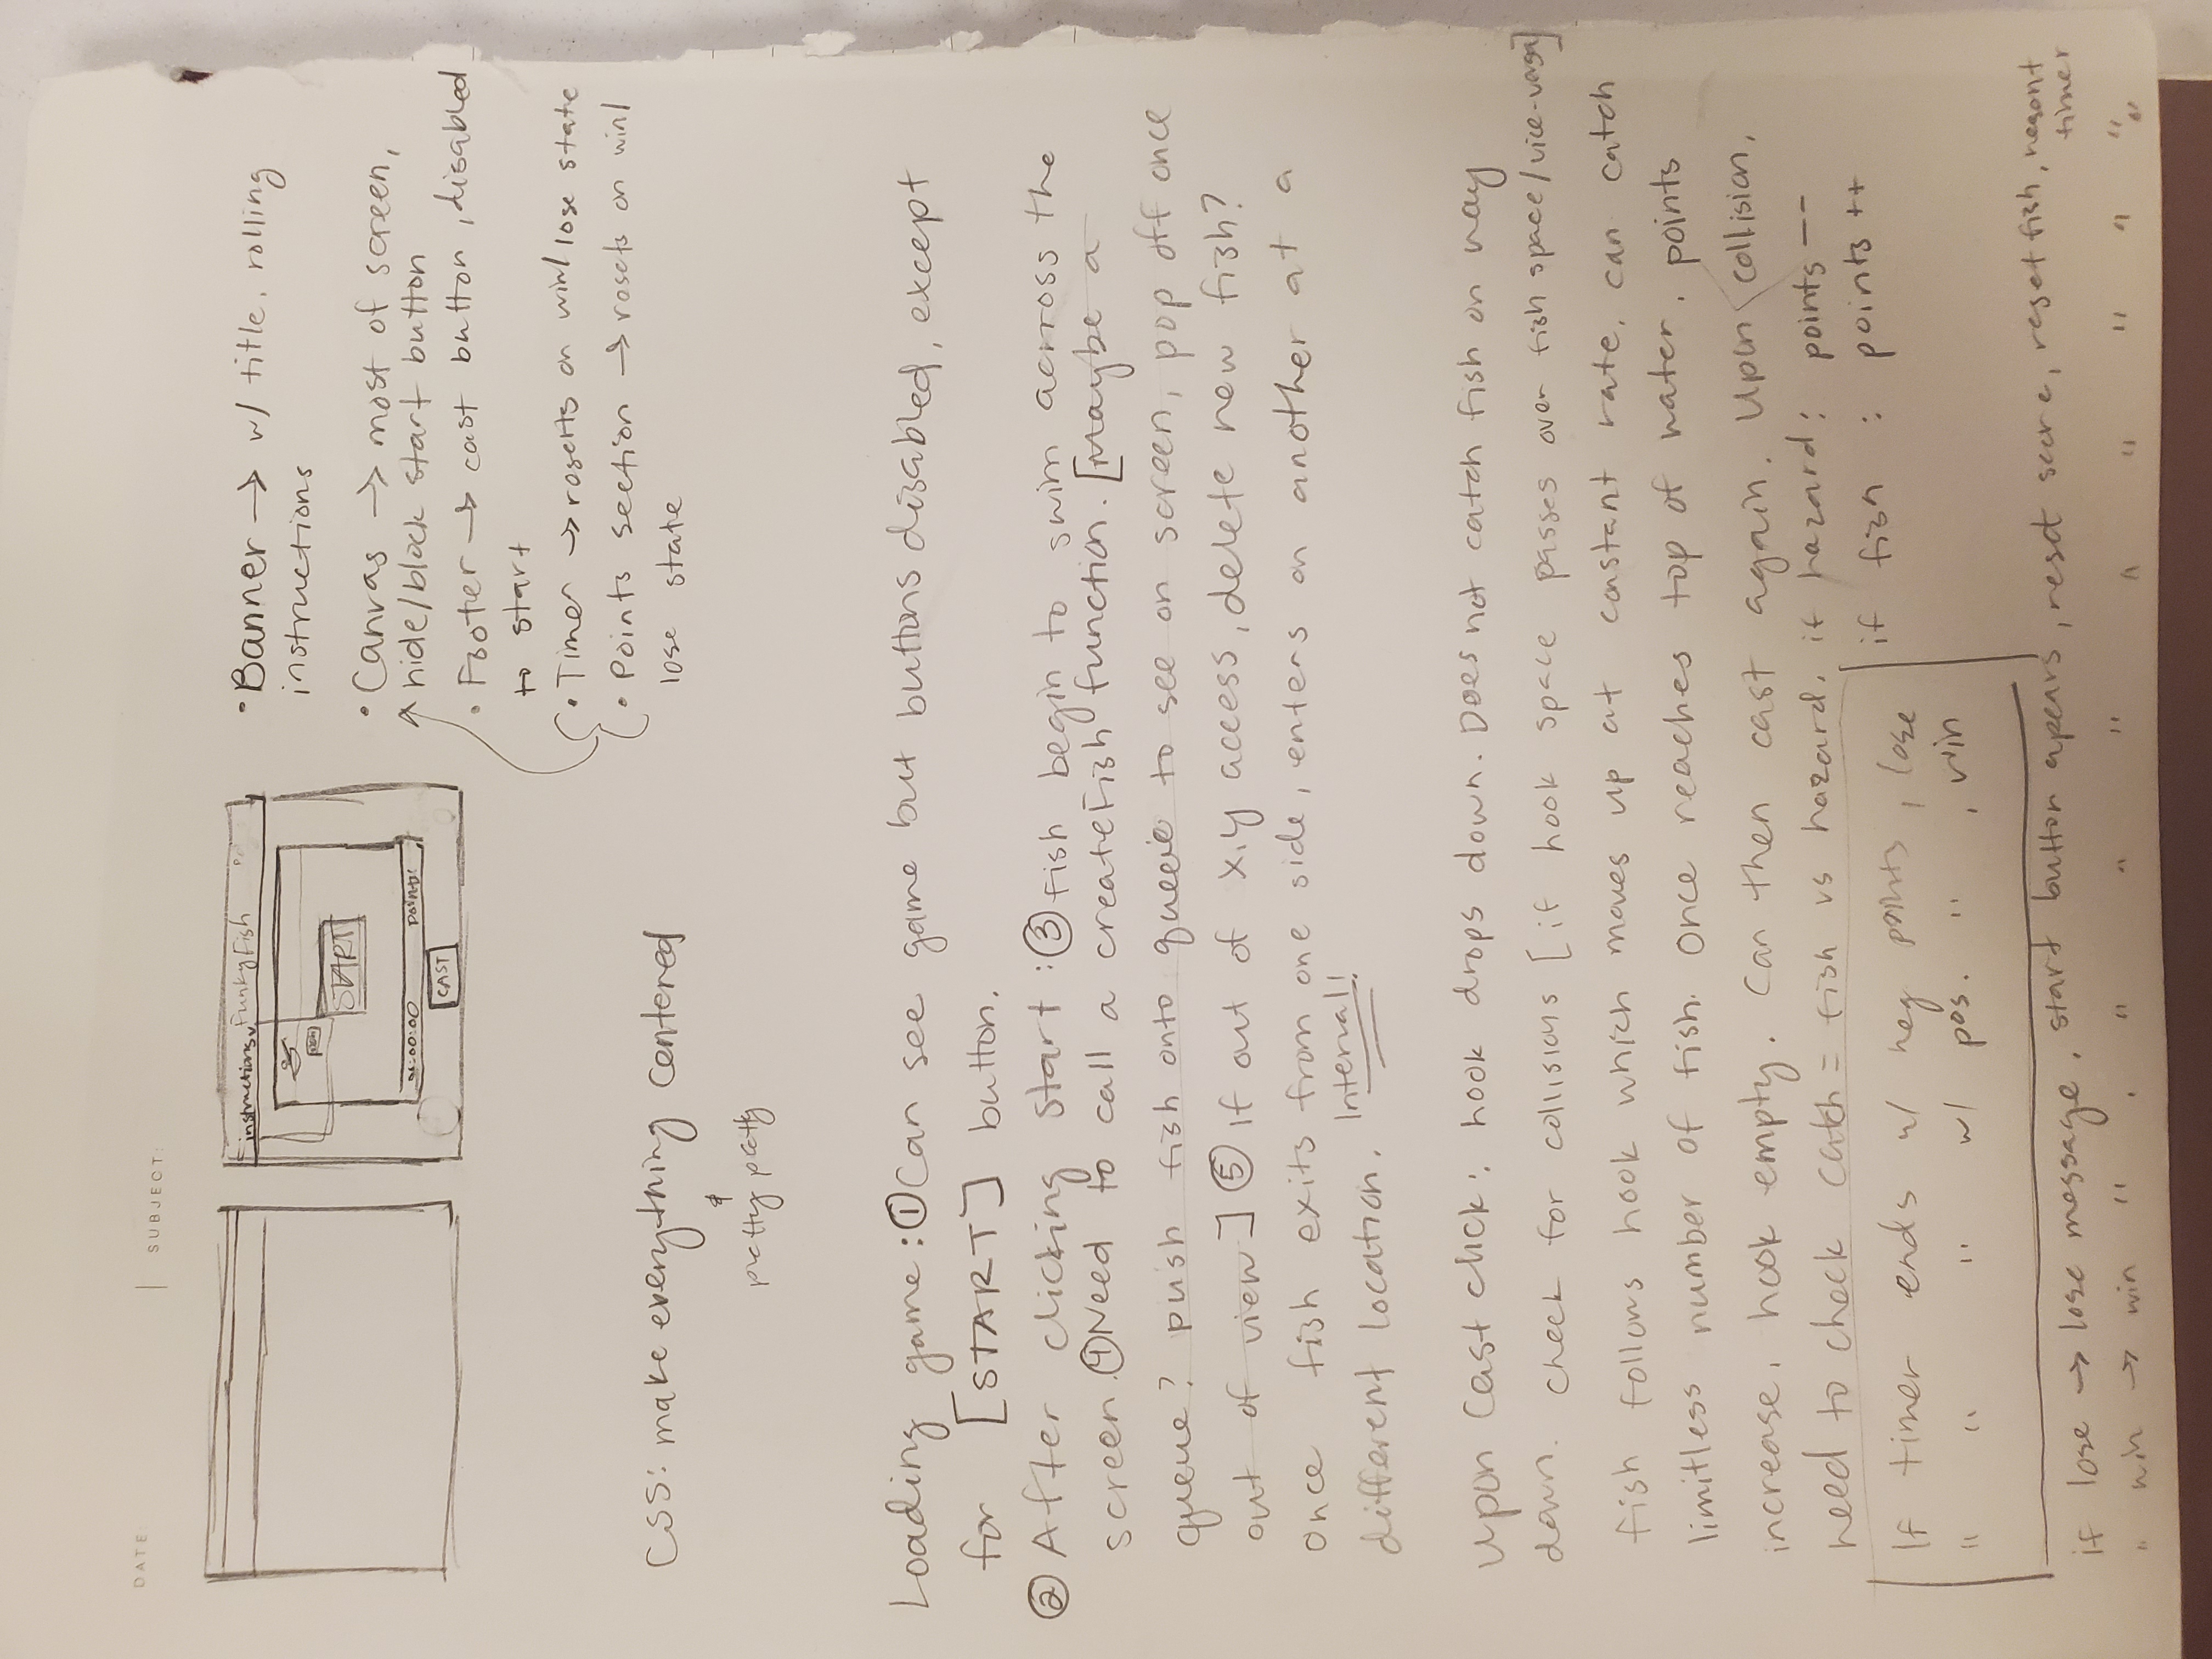 DATE:
SUBJECT:
instructions v Funky Fish
START
00:00
points:
CAST
• Banner → w/ title, rolling
instructions
• Canvas → most of screen,
hide/block start button
• Footer → cast button, disabled
to start
• Timer → reserts on win/lose state
• Points section → resets on win/
lose state
CSS: make everything centered
&
pretty pretty
Loading game: ① Can see game but buttons disabled, except
for [START] button.
② After clicking start: ③ fish begin to swim acrross the
screen. ④ Need to call a createFish function. [Maybe a
queue? push fish onto queue to see on screen, pop off once
out of view] ⑤ If out of x,y access, delete new fish?
once fish exits from one side, enters on another at a
different location. Interval!
Upon Cast click: hook drops down. Does not catch fish on way
down. check for collisions [if hook space passes over fish space/vice-versa]
fish follows hook which moves up at constant rate. can catch
limitless number of fish. Once reaches top of water, points
increase, hook empty. Can then cast again. Upon collision,
need to check catch = fish vs hazard. if hazard: points --
if fish : points ++
If timer ends w/ neg points, lose
" " " w/ pos. " , win
if lose → lose message, start button apears, reset score, reset fish,
timer
" win → win " . " " " " " " " "